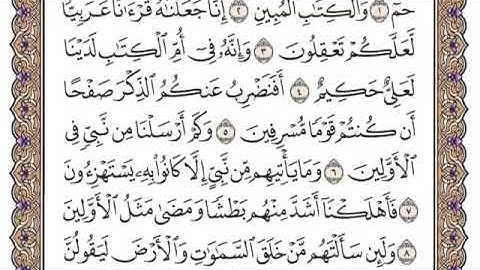 حمٓ ١ وَٱلْكِتَٰبِ ٱلْمُبِينِ ٢ إِنَّا جَعَلْنَٰهُ قُرْءَٰنًا عَرَبِيًّا
لَّعَلَّكُمْ تَعْقِلُونَ ٣ وَإِنَّهُۥ فِىٓ أُمِّ ٱلْكِتَٰبِ لَدَيْنَا
لَعَلِىٌّ حَكِيمٌ ٤ أَفَنَضْرِبُ عَنكُمُ ٱلذِّكْرَ صَفْحًا
أَن كُنتُمْ قَوْمًا مُّسْرِفِينَ ٥ وَكَمْ أَرْسَلْنَا مِن نَّبِىٍّ فِى
ٱلْأَوَّلِينَ ٦ وَمَا يَأْتِيهِم مِّن نَّبِىٍّ إِلَّا كَانُوا۟ بِهِۦ يَسْتَهْزِءُونَ
٧ فَأَهْلَكْنَآ أَشَدَّ مِنْهُم بَطْشًا وَمَضَىٰ مَثَلُ ٱلْأَوَّلِينَ
٨ وَلَئِن سَأَلْتَهُم مَّنْ خَلَقَ ٱلسَّمَٰوَٰتِ وَٱلْأَرْضَ لَيَقُولُنَّ